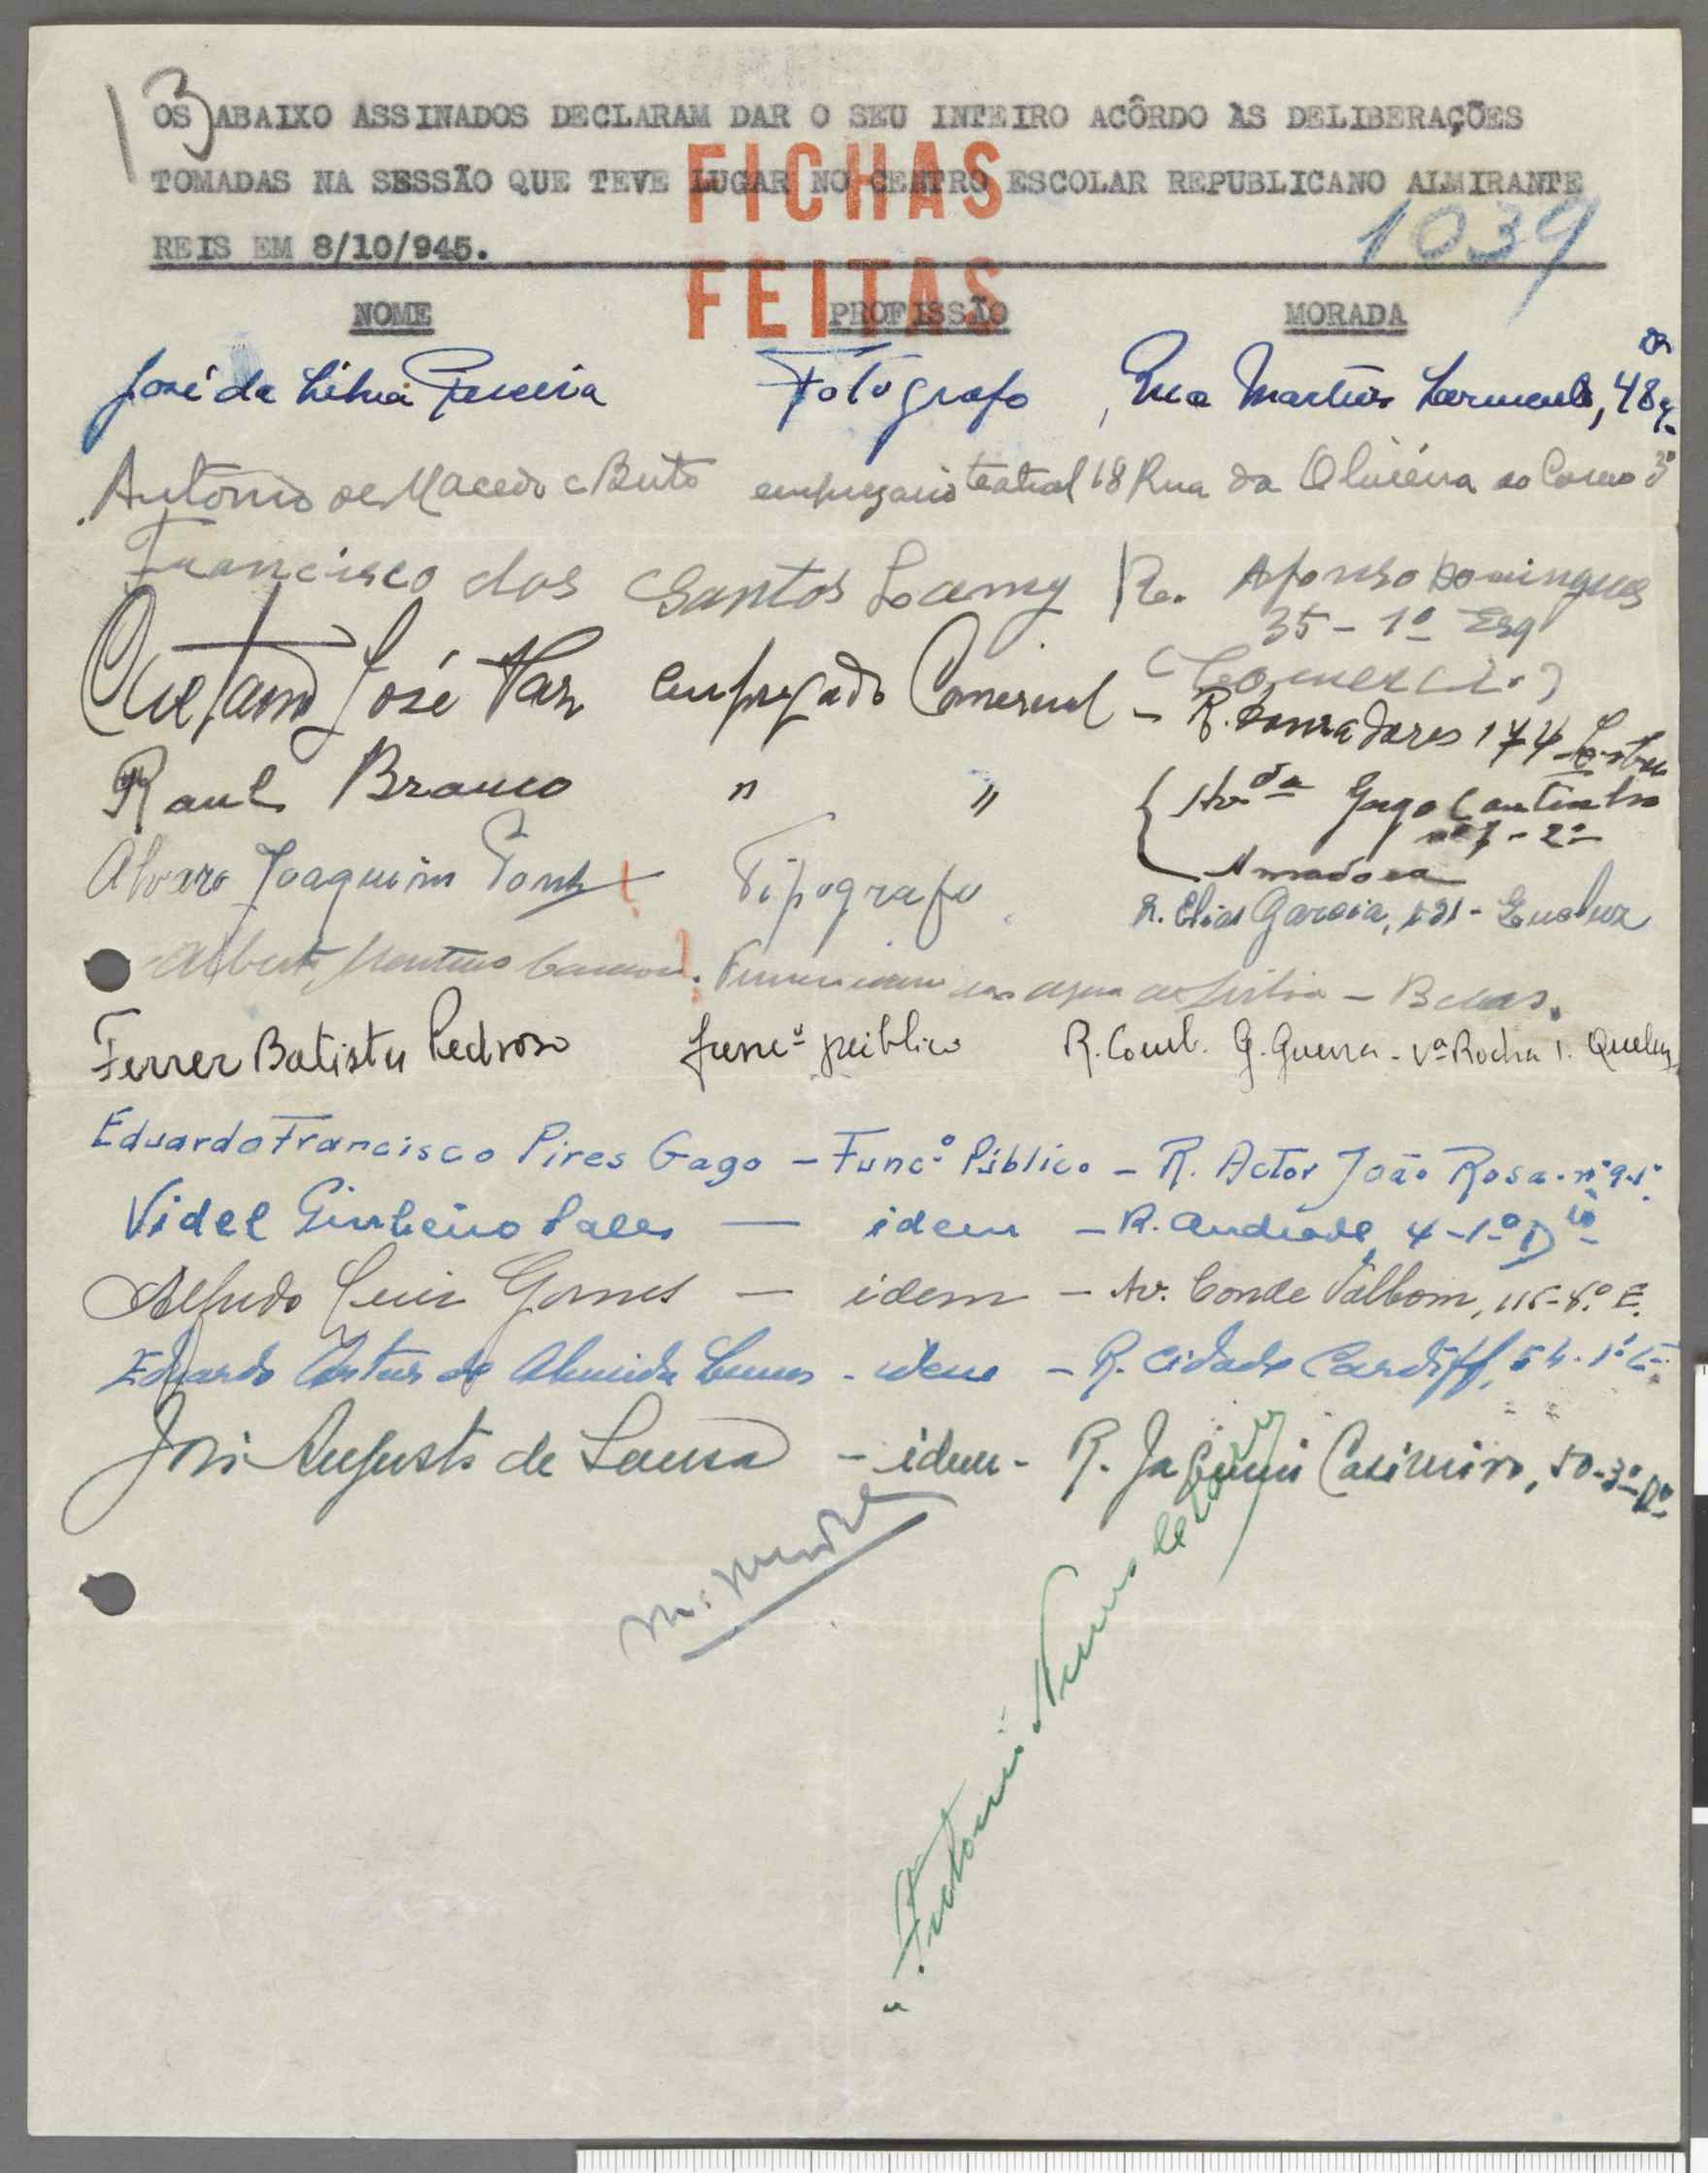 13
OS ABAIXO ASSINADOS DECLARAM DAR O SEU INTEIRO ACÔRDO ÀS DELIBERAÇÕES
TOMADAS NA SESSÃO QUE TEVE LUGAR NO CENTRO ESCOLAR REPUBLICANO ALMIRANTE
REIS EM 8/10/945.
FICHAS
FEITAS
1039
NOME PROFISSÃO MORADA
José da Silva Pereira Fotógrafo, Rua Martins Sarmento, 48
Antonio de Macedo e Brito empresario teatral 18 Rua da Oliveira ao Carmo 3º
Francisco dos Santos Lamy R. Afonso Domingues
35-1º Esq
(Comercio)
Caetano José Vaz empregado Comercial - R. Douradores 174
Raul Branco " " Av. da Gago Coutinho
nº 7-2º
Amadora
Alvaro Joaquim Tipografo R. Elias Garcia, 121 - Queluz
Alberto - Belas.
Ferrer Batista Pedroso funcº público R. Comb. G. Guerra - Vª Rocha 1. Queluz
Eduardo Francisco Pires Gago - Funcº Público - R. Actor João Rosa - nº 9-1º
Videl Sales — idem - R. Andrade 4-1º Dto
Alfredo Luiz Gomes — idem - Av. Conde Valbom, 116-5.º E.
Eduardo Artur de Almeida - idem - R. Cidade Cardiff, 54-1º E.
José Augusto de Sousa - idem - R. Jacinto Casimiro, 50-3º D.
M. Mendes
Antonio Nunes